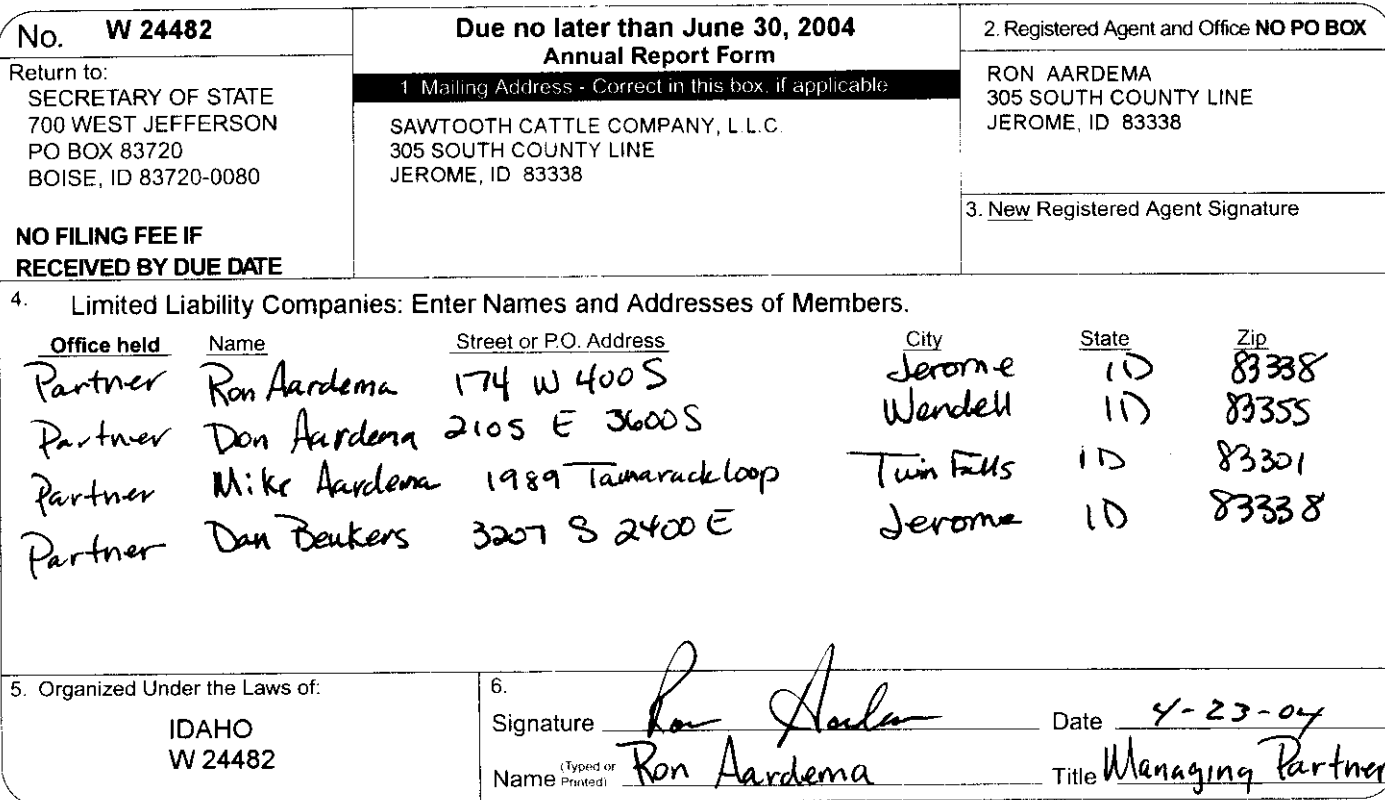 No. W 24482
Return to:
SECRETARY OF STATE
700 WEST JEFFERSON
PO BOX 83720
BOISE, ID 83720-0080
NO FILING FEE IF
RECEIVED BY DUE DATE
Due no later than June 30, 2004
Annual Report Form
1 Mailing Address - Correct in this box, if applicable
SAWTOOTH CATTLE COMPANY, L.L.C.
305 SOUTH COUNTY LINE
JEROME, ID 83338
2. Registered Agent and Office NO PO BOX
RON AARDEMA
305 SOUTH COUNTY LINE
JEROME, ID 83338
3. New Registered Agent Signature
4. Limited Liability Companies: Enter Names and Addresses of Members.
Office held Name Street or P.O. Address City State Zip
Partner Ron Aardema 174 W 400 S Jerome ID 83338
Partner Don Aardema 2105 E 3600 S Wendell ID 83355
Partner Mike Aardema 1989 Tamarack loop Twin Falls ID 83301
Partner Dan Beukers 3207 S 2400 E Jerome ID 83338
5. Organized Under the Laws of:
IDAHO
W 24482
6.
Signature Ron Aardema Date 4-23-04
Name (Typed or Printed) Ron Aardema Title Managing Partner